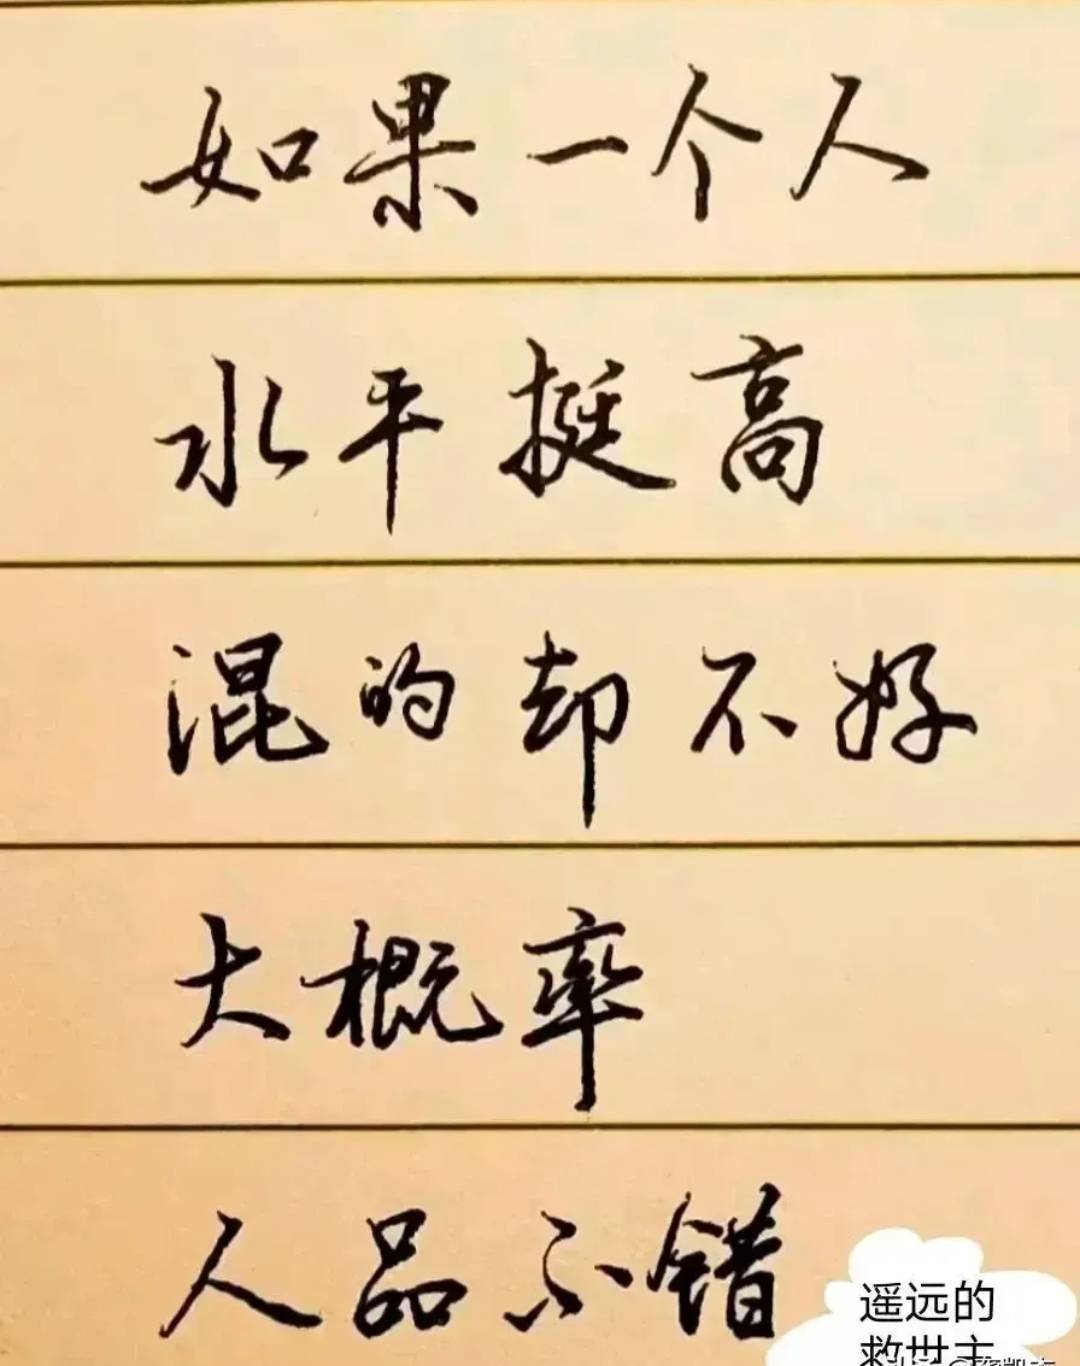 如果一个人
水平挺高
混的却不好
大概率
人品不错
遥远的
救世主